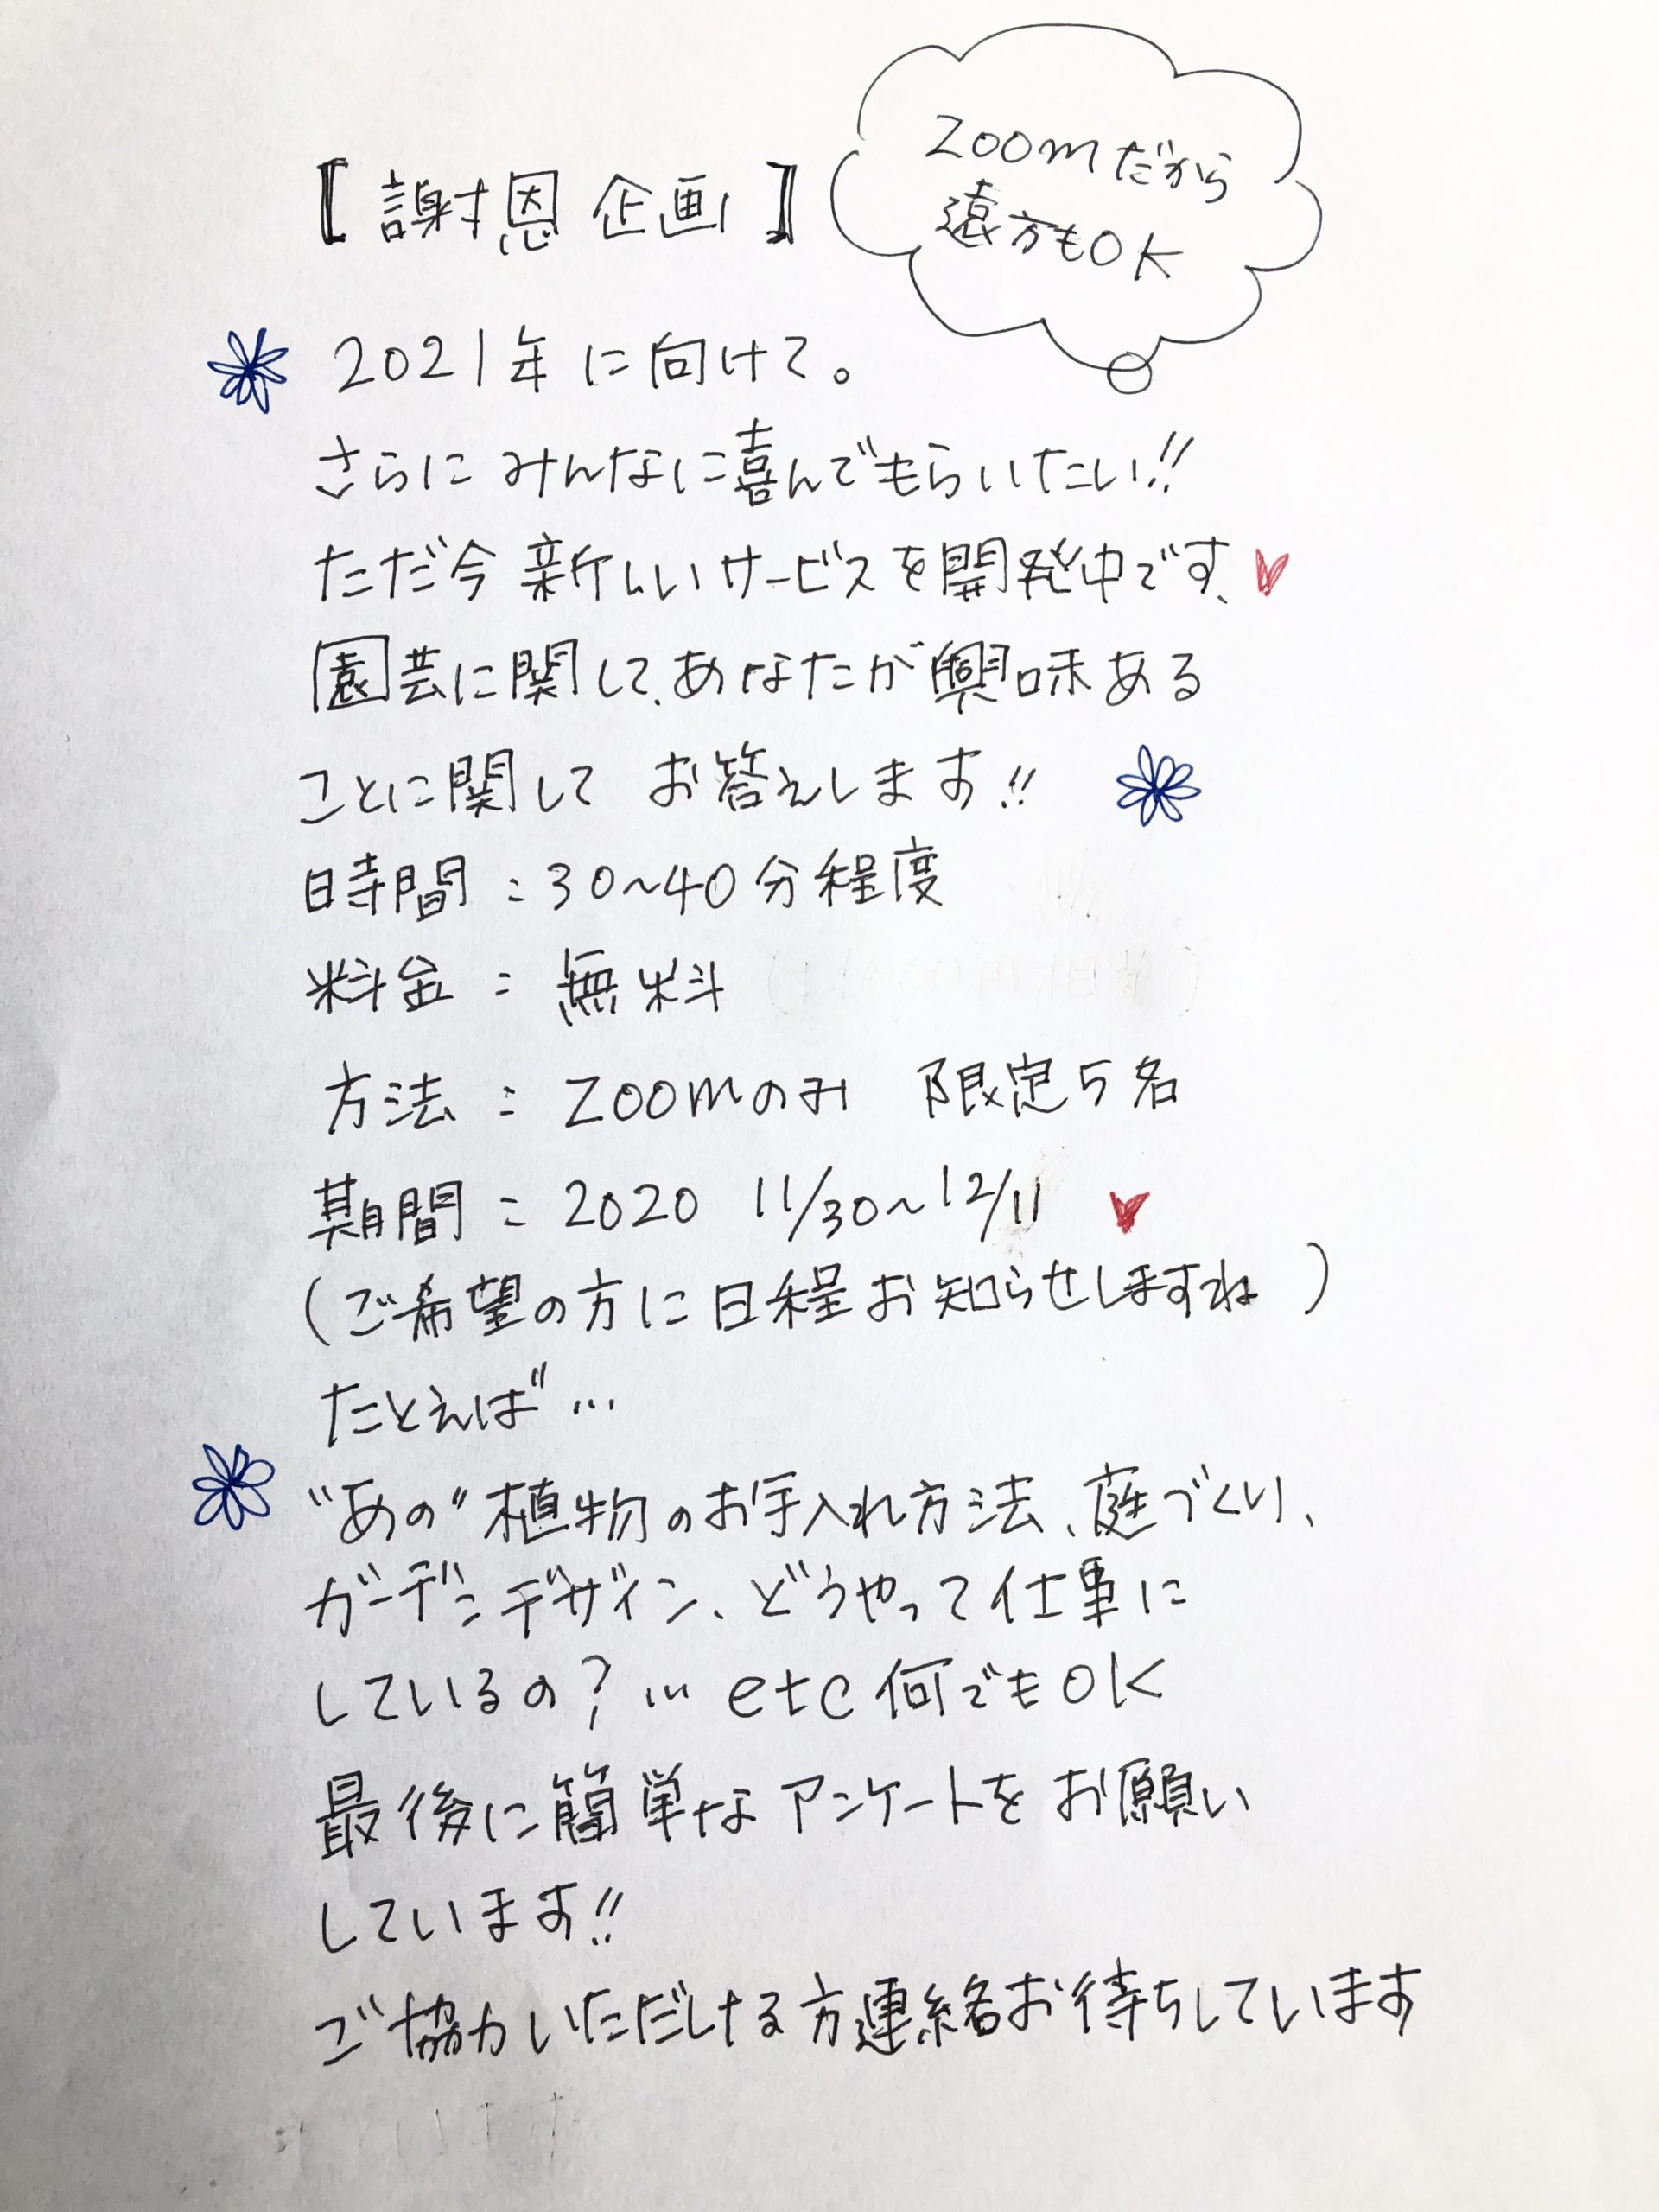 【謝恩企画】
Zoomだから
遠方もOK
2021年に向けて。
さらにみんなに喜んでもらいたい!!
ただ今新しいサービスを開発中です、
園芸に関して、あなたが興味ある
ことに関して お答えします!!
時間:30~40分程度
料金:無料
方法:Zoomのみ 限定5名
期間:2020 11/30~12/11
(ご希望の方に日程お知らせしますね)
たとえば…
"あの"植物のお手入れ方法、庭づくり、
ガーデンデザイン、どうやって仕事に
しているの?…etc何でもOK
最後に簡単なアンケートをお願い
しています!!
ご協力いただける方連絡お待ちしています